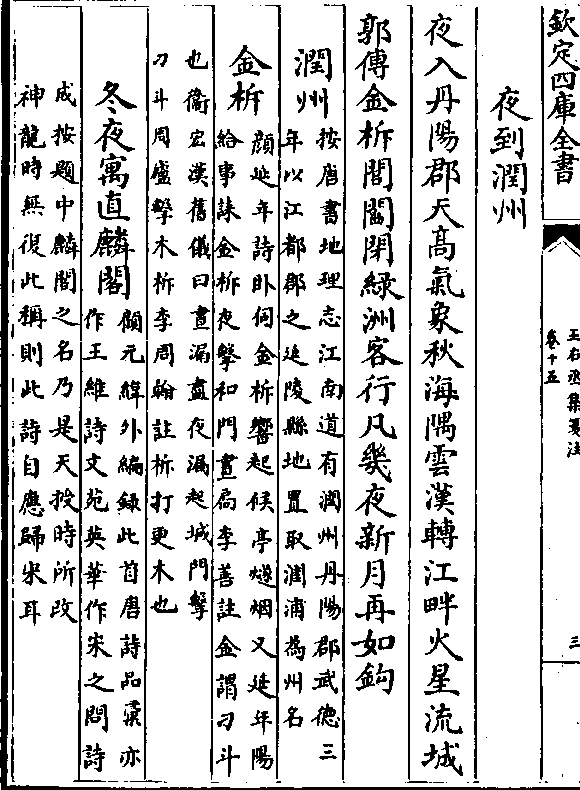 欽定四庫全書
王右丞集箋注
卷十五
三
夜到潤州
夜入丹陽郡天髙氣象秋海隅雲漢轉江畔火星流城
郭傳金柝閭閻閉綠洲客行凡幾夜新月再如鈎
潤州
按唐書地理志江南道有潤州丹陽郡武德三
年以江都郡之延陵縣地置取潤浦為州名
金柝
顔延年詩卧伺金柝響起候亭燧烟又延年陽
給事誄金柝夜擊和門晝扃李善註金謂刁斗
也衞宏漢舊儀曰晝漏盡夜漏起城門擊
刁斗周廬擊木柝李周翰註柝打更木也
冬夜寓直麟閣
顧元緯外編録此首唐詩品彚亦
作王維詩文苑英華作宋之問詩
成按題中麟閣之名乃是天授時所改
神龍時無復此稱則此詩自應歸宋耳